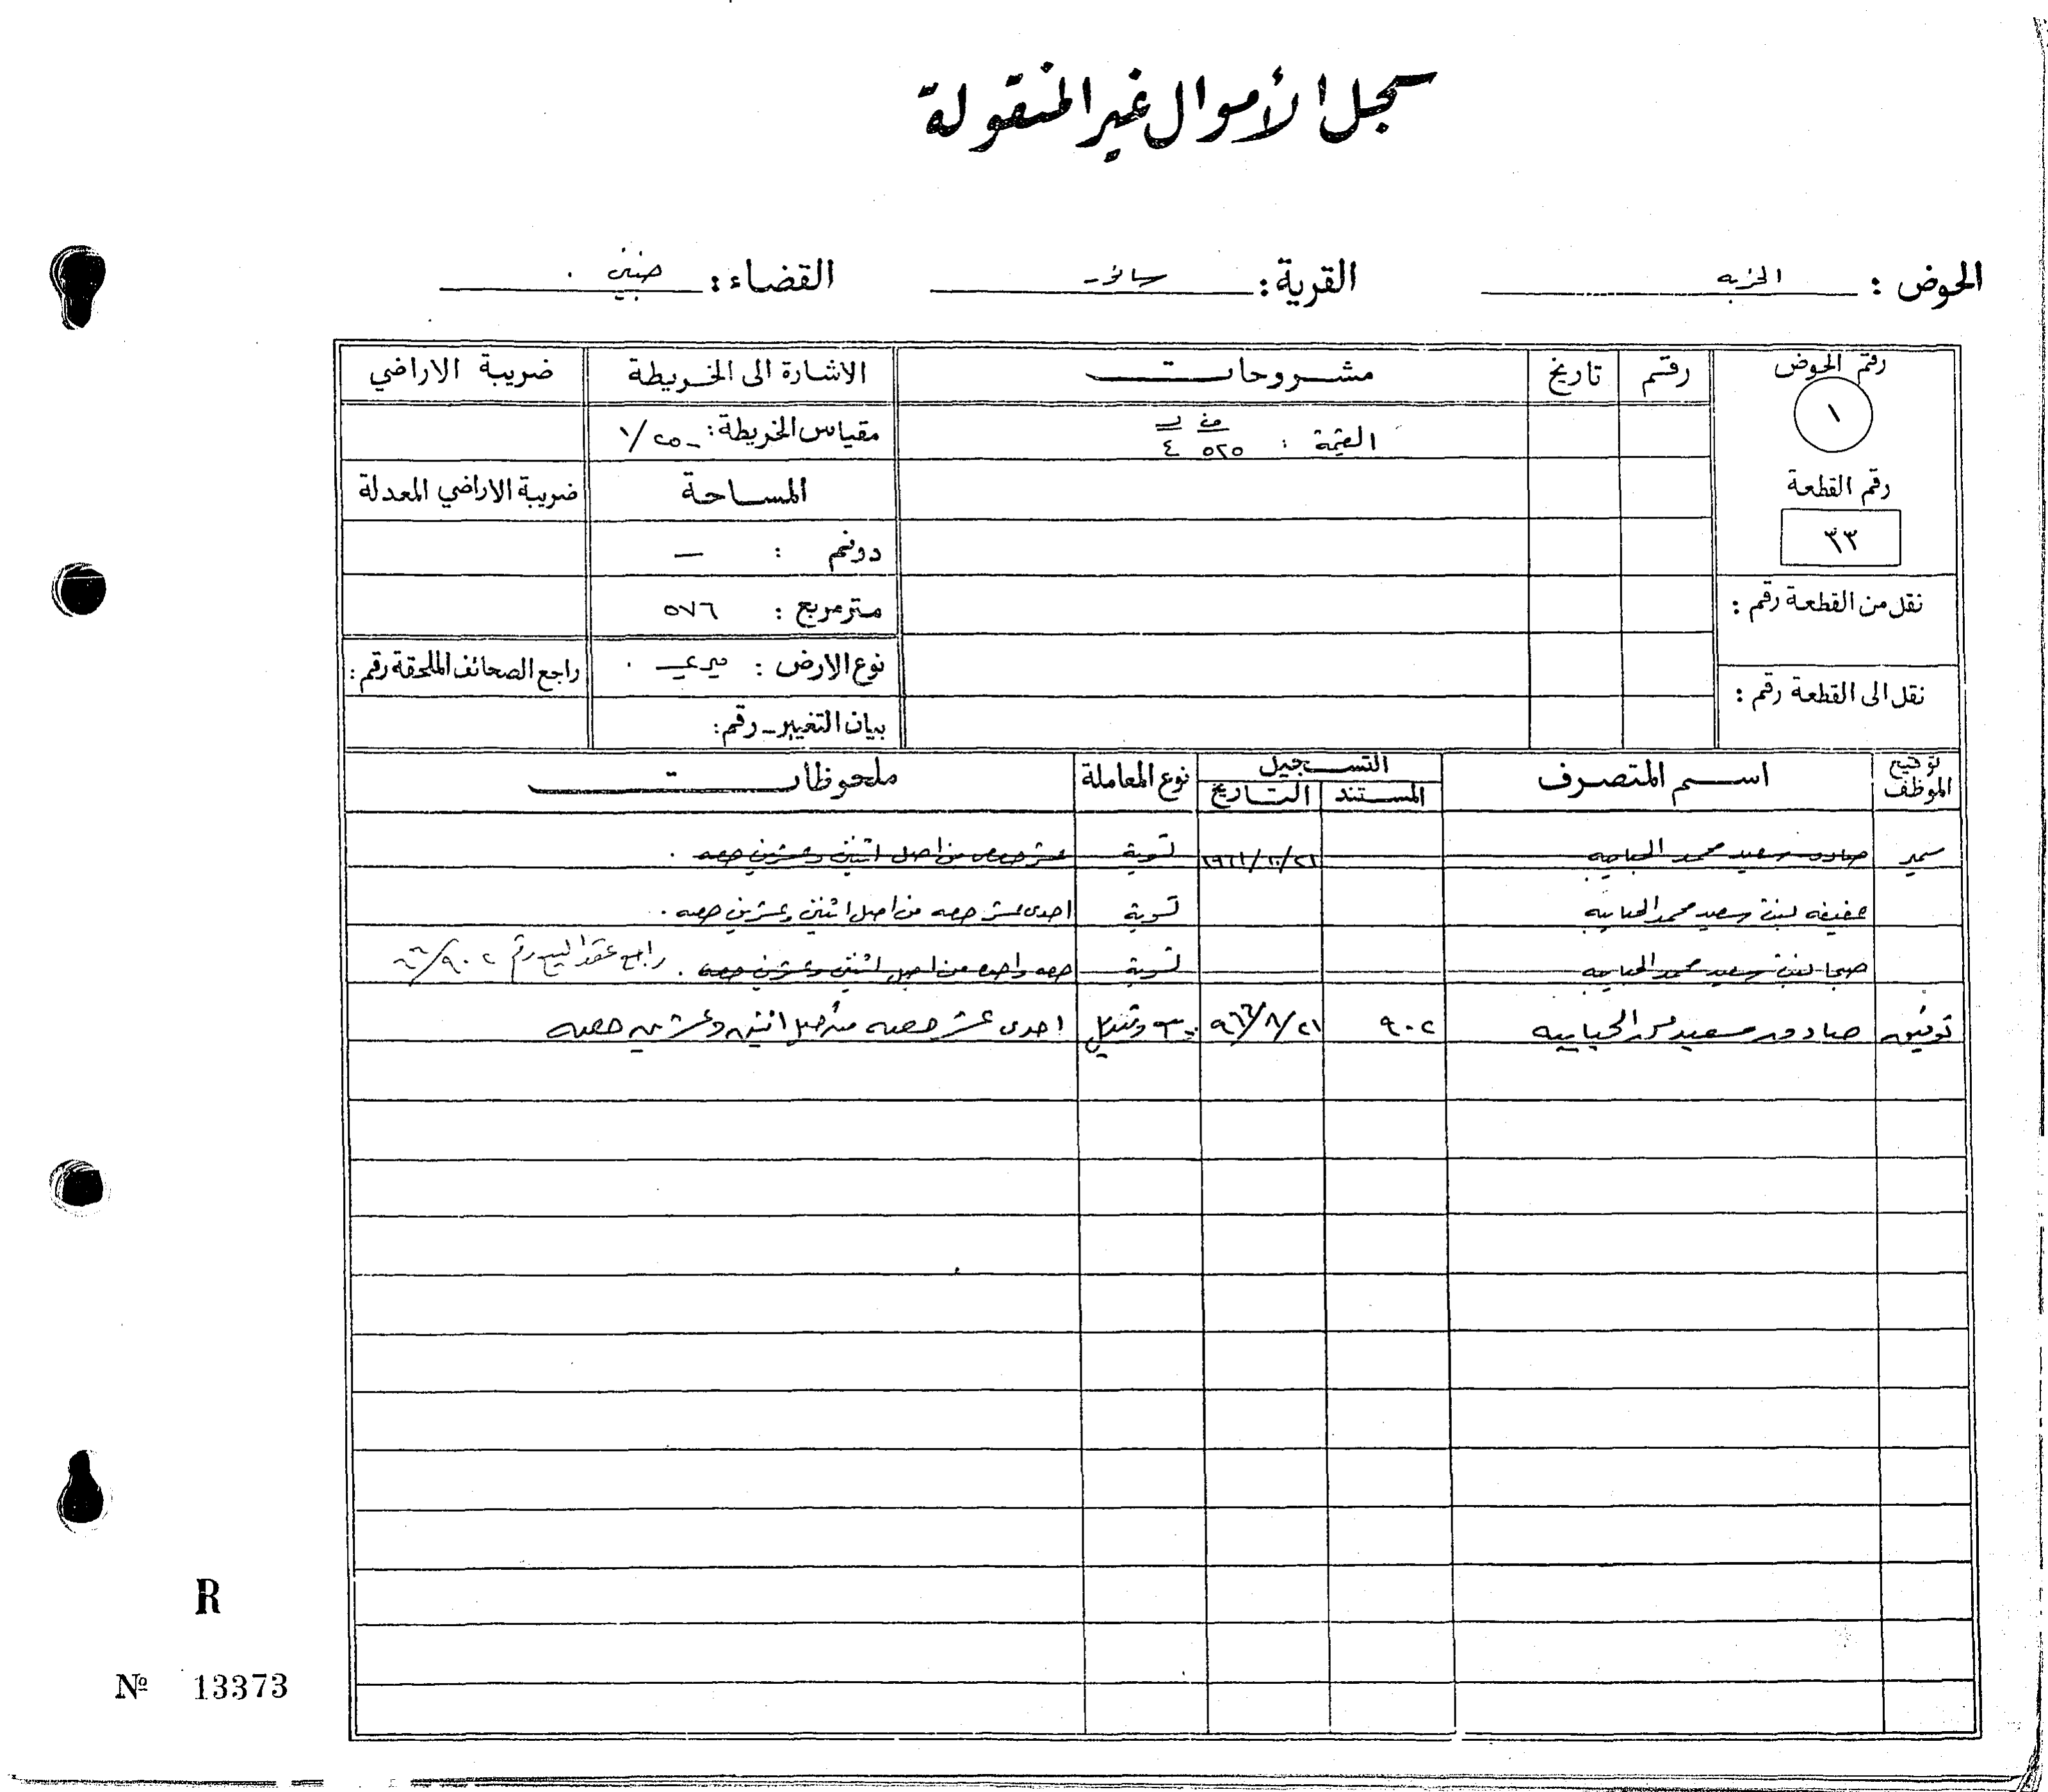 سجل الأموال غير المنقولة
الحوض : الخربه القرية : سانور القضاء : جنين
رقم الحوض رقم تاريخ مشروحات الاشارة الى الخريطة ضريبة الاراضي
١ القيمة : ٥٢٥ ٤ مقياس الخريطة : ١/٢٥٠٠
رقم القطعة المساحة ضريبة الاراضي المعدلة
٣٣ دونم : —
نقل من القطعة رقم : متر مربع : ٥٧٦
نوع الارض : ميري راجع الصحائف الملحقة رقم :
نقل الى القطعة رقم : بيان التغيير - رقم :
توقيع الموظف اسم المتصرف التسجيل نوع المعاملة ملحوظات
المستند التاريخ
سمير صادق سعيد محمد الحبايبه ١٩٦١/١٠/٢١ تسوية عشر حصص من اصل اثنين وعشرين حصه .
عفيفه بنت سعيد محمد الحبايبه تسوية احدى عشر حصه من اصل اثنين وعشرين حصه .
بنت سعيد محمد الحبايبه تسوية حصه واحده من اصل اثنين وعشرين حصه . راجع عقد البيع رقم ٩٠٢/٦٦
توفيق صادق سعيد محمد الحبايبه ٩٠٢ ٩٦٦/٨/٢١ احدى عشر حصه من اصل اثنين وعشرين حصه
R
№ 13373